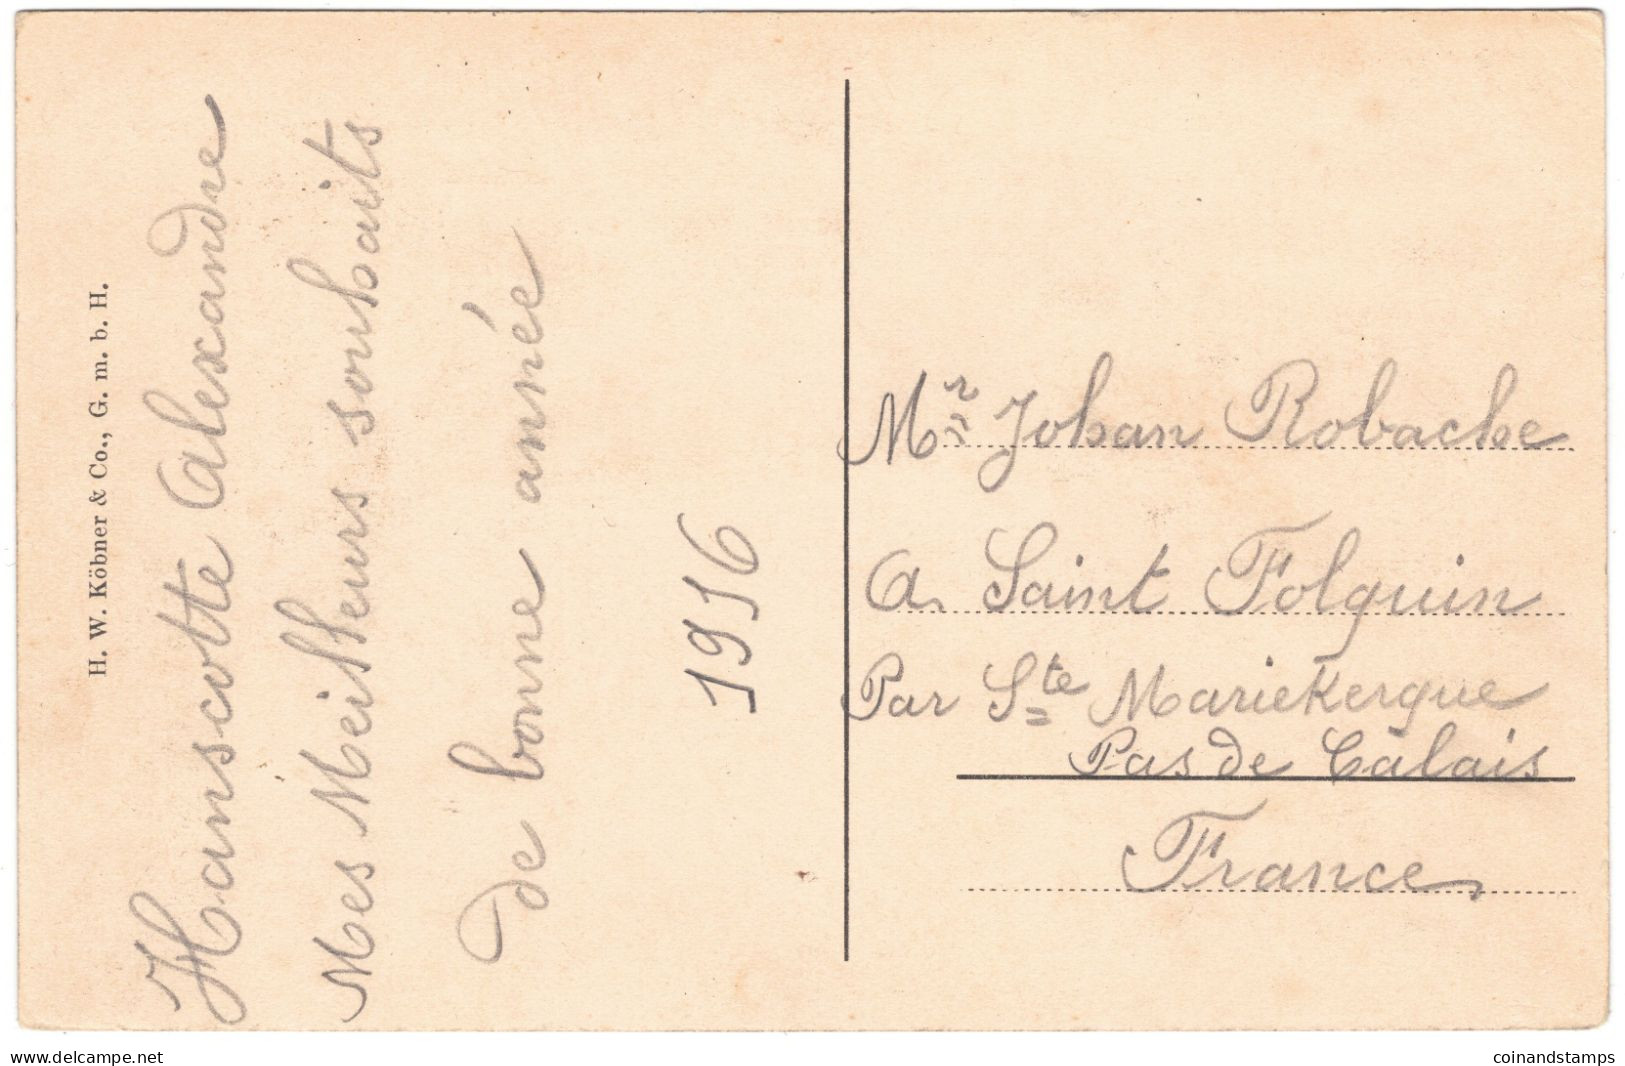 H. W. Köbner & Co., G. m. b. H.
Hanscotte Alexandre
Mes Meilleurs souhaits
de bonne année
1916
Mr Johan Robache
a Saint Folquin
Par Ste Mariekerque
Pas de Calais
France
delcampe.net
coinandstamps